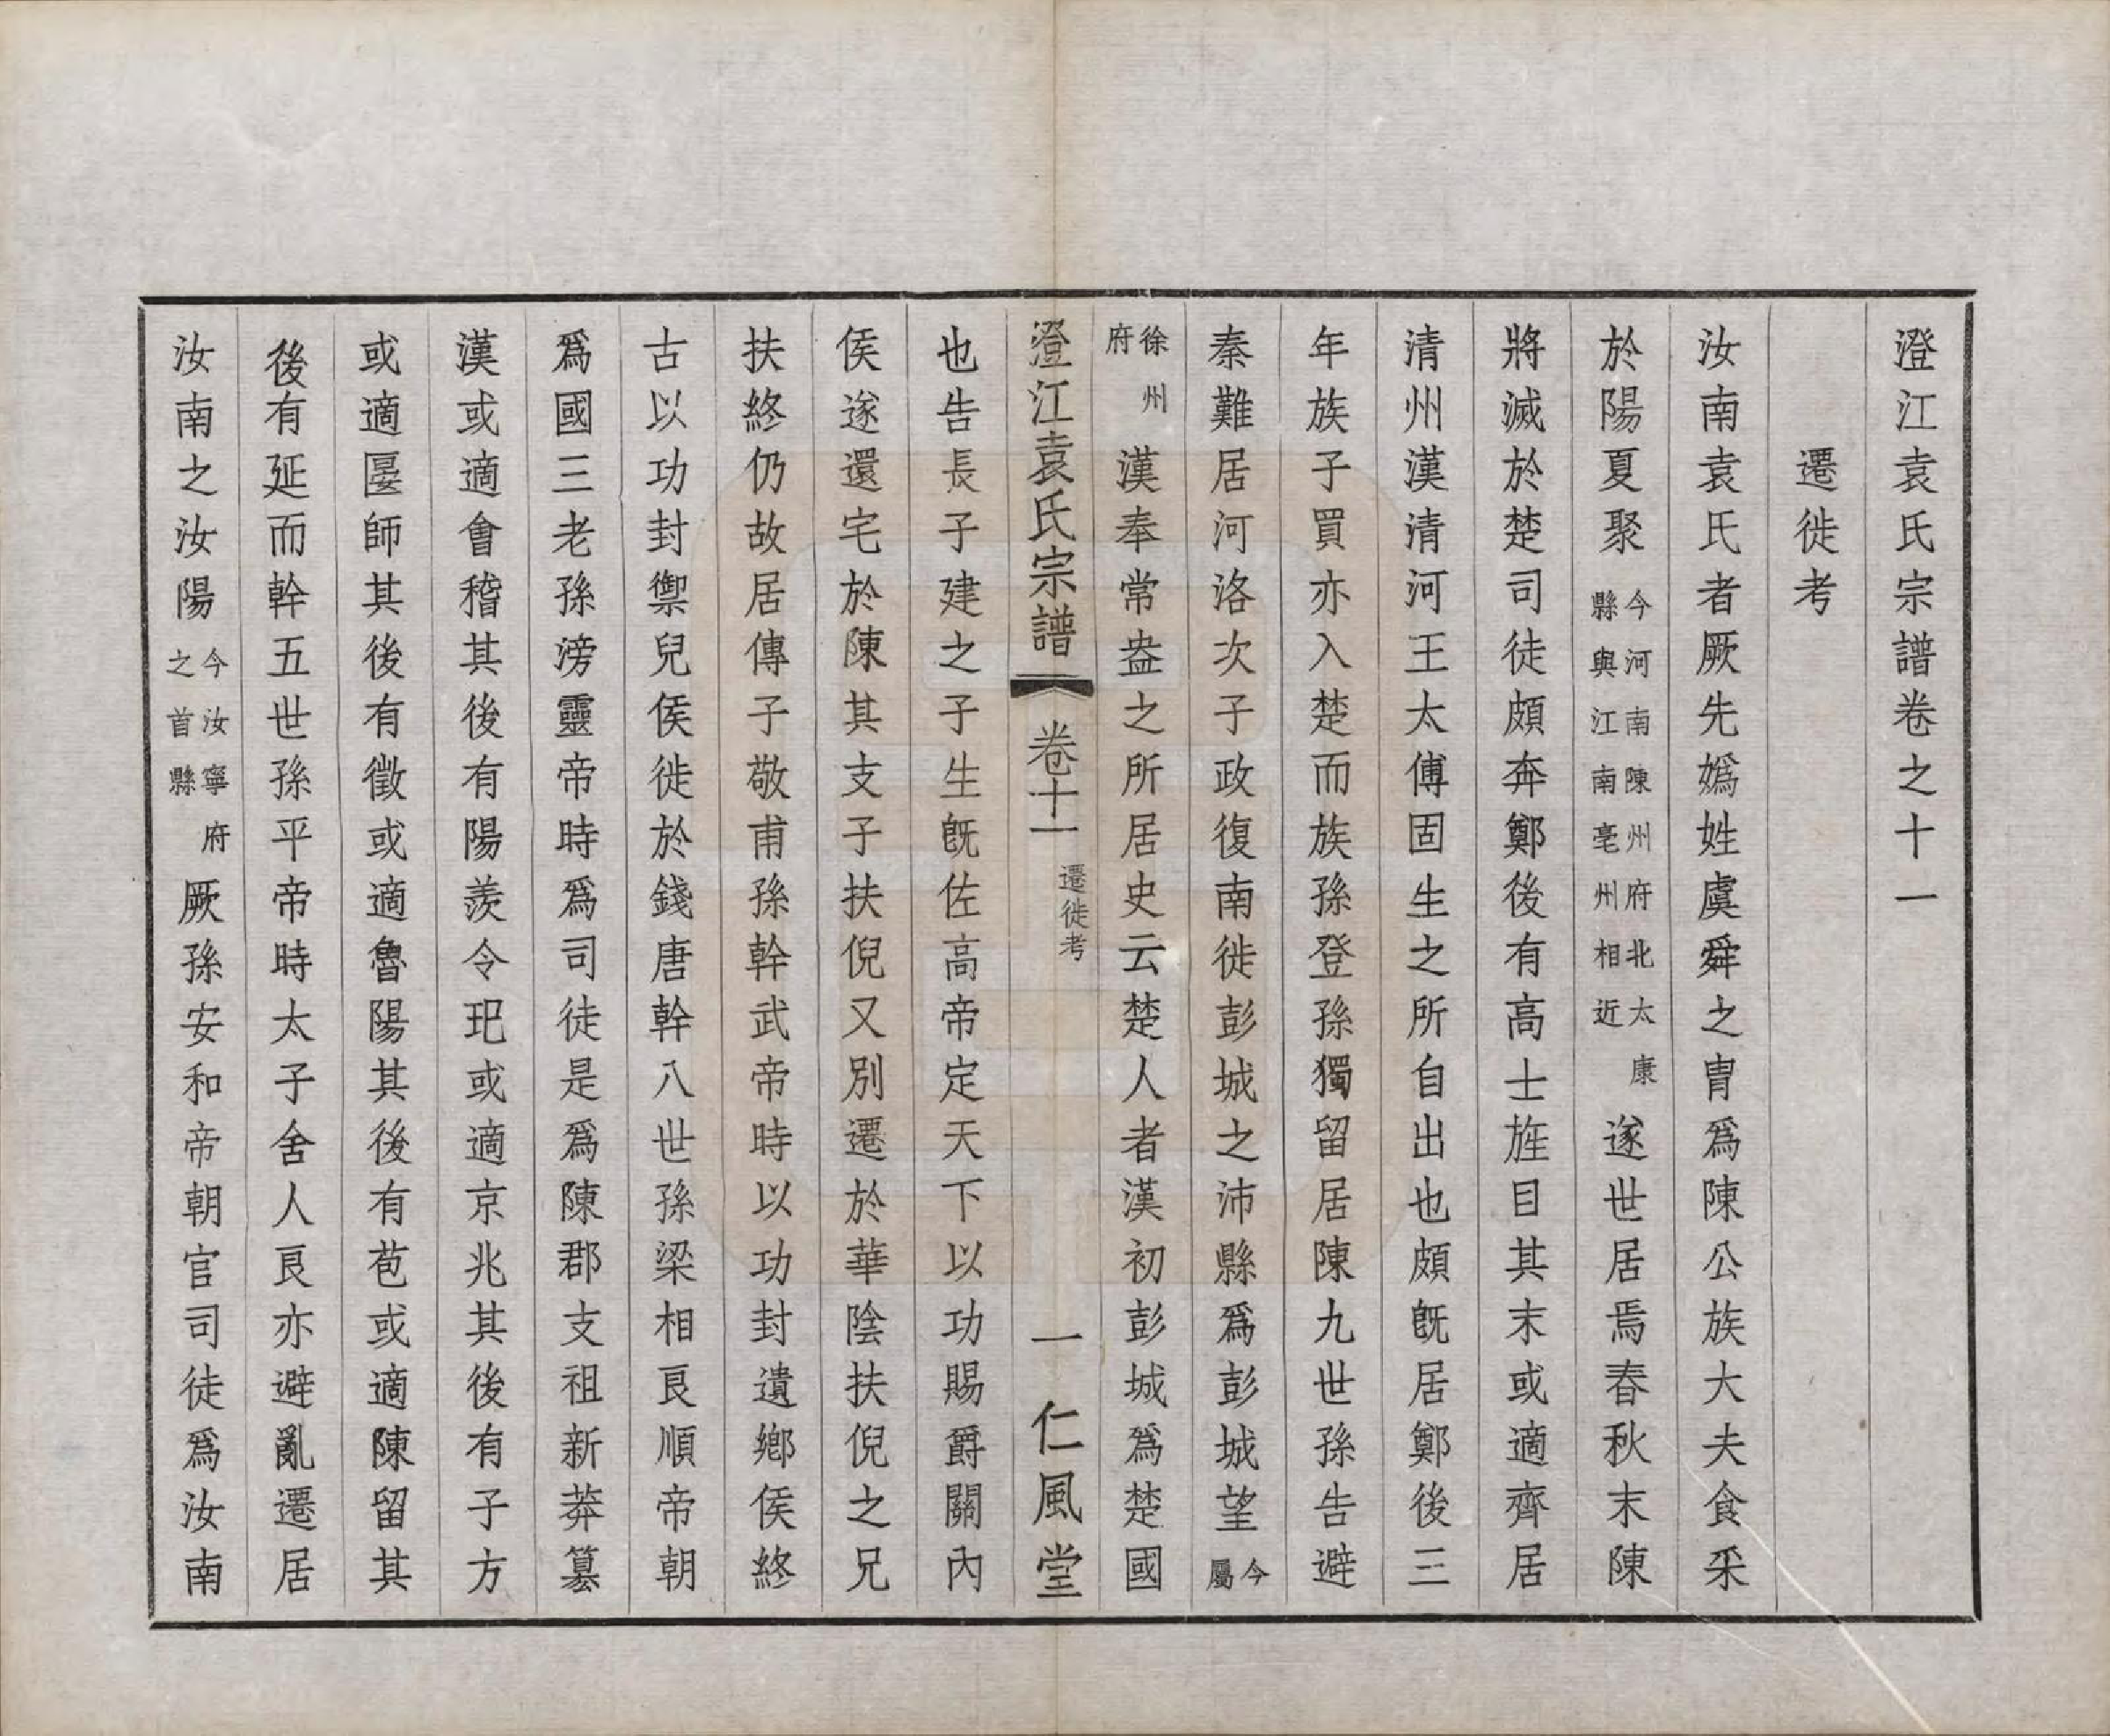 澄江袁氏宗譜卷之十一
遷徙考
汝南袁氏者厥先嬀姓虞舜之胄爲陳公族大夫食采
於陽夏聚今河南陳州府北太康縣與江南亳州相近遂世居焉春秋末陳
將滅於楚司徒頗奔鄭後有高士旌目其末或適齊居
清州漢清河王太傅固生之所自出也頗旣居鄭後三
年族子買亦入楚而族孫登孫獨留居陳九世孫告避
秦難居河洛次子政復南徙彭城之沛縣爲彭城望今屬
徐州府漢奉常盎之所居史云楚人者漢初彭城爲楚國
澄江袁氏宗譜 卷十一 遷徙考 一 仁風堂
也告長子建之子生旣佐高帝定天下以功賜爵關內
侯遂還宅於陳其支子扶倪又別遷於華陰扶倪之兄
扶終仍故居傳子敬甫孫幹武帝時以功封遺鄕侯終
古以功封禦兒侯徙於錢唐幹八世孫梁相良順帝朝
爲國三老孫滂靈帝時爲司徒是爲陳郡支祖新莽篡
漢或適會稽其後有陽羨令玘或適京兆其後有子方
或適匽師其後有徵或適魯陽其後有苞或適陳留其
後有延而幹五世孫平帝時太子舍人良亦避亂遷居
汝南之汝陽今汝寧府之首縣厥孫安和帝朝官司徒爲汝南